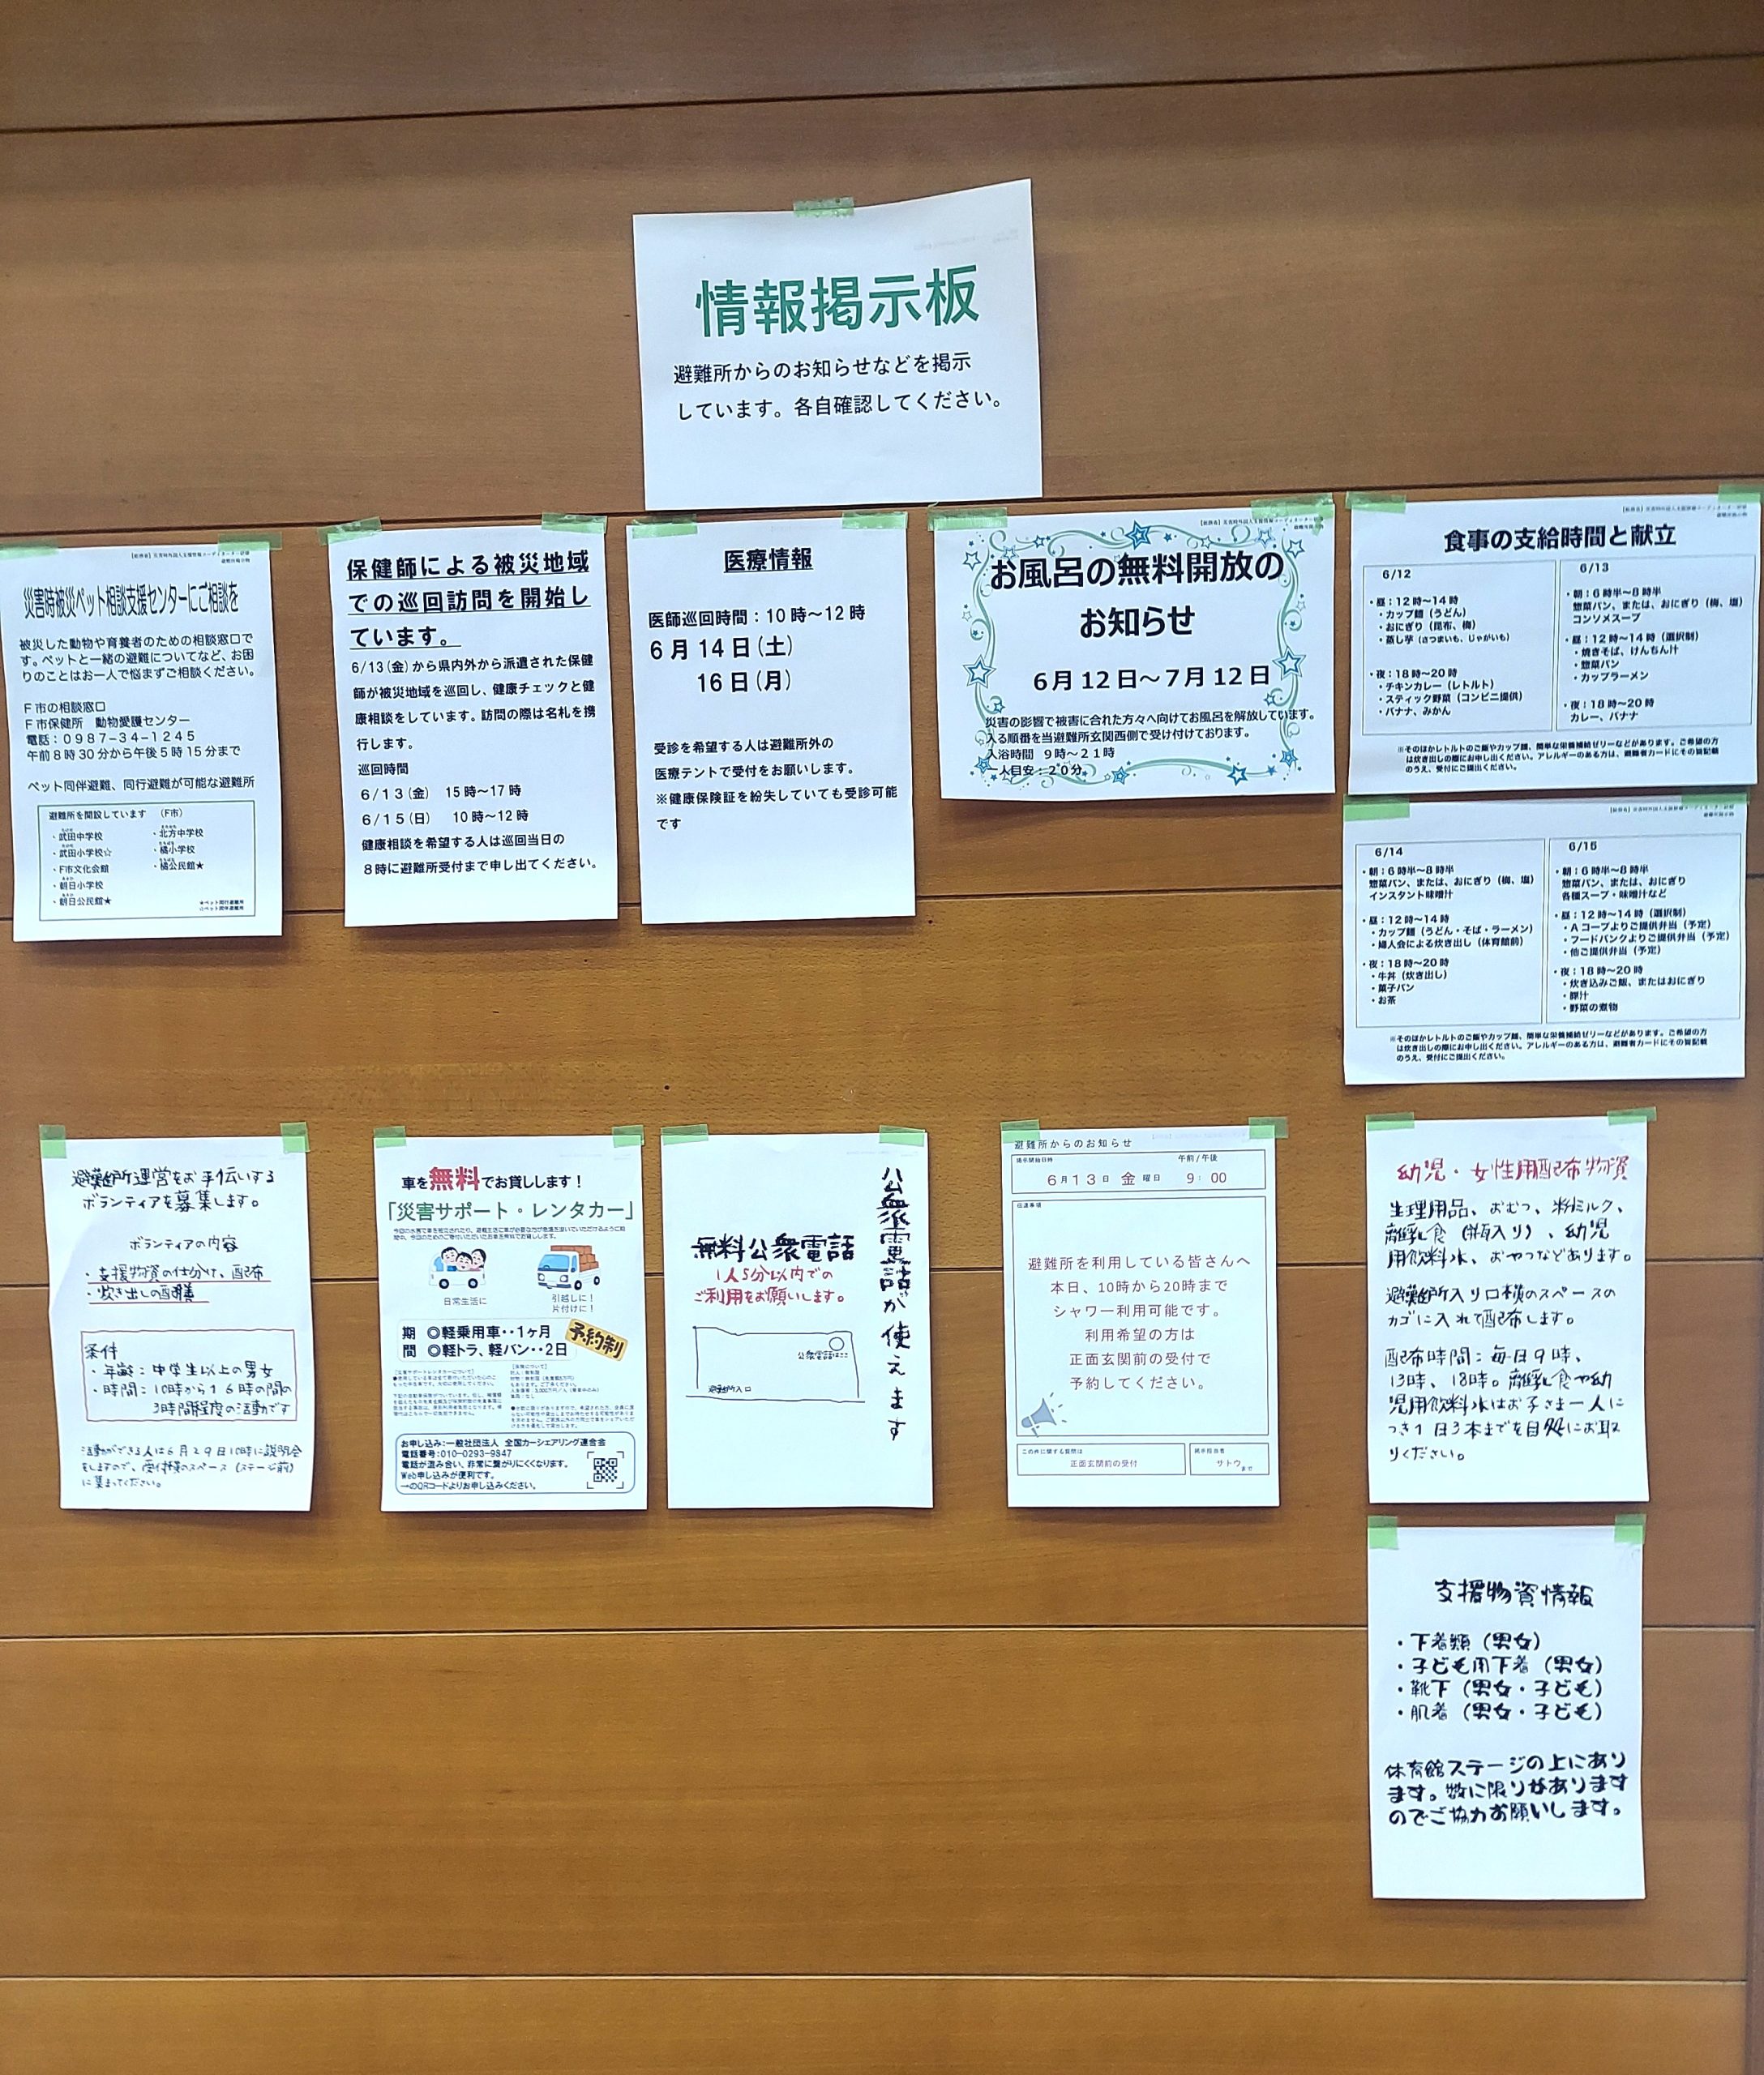 情報掲示板
避難所からのお知らせなどを掲示
しています。各自確認してください。
災害時被災ペット相談支援センターにご相談を
被災した動物や育養者のための相談窓口で
す。ペットと一緒の避難についてなど、お困
りのことはお一人で悩まずご相談ください。
F市の相談窓口
F市保健所 動物愛護センター
電話：0987-34-1245
午前8時30分から午後5時15分まで
ペット同伴避難、同行避難が可能な避難所
避難所を開設しています （F市）
・武田中学校
・武田小学校☆
・F市文化会館
・朝日小学校
・朝日公民館★
・北方中学校
・橘小学校
・橘公民館★
★ペット同行避難所
☆ペット同伴避難所
保健師による被災地域
での巡回訪問を開始し
ています。
6/13(金)から県内外から派遣された保健
師が被災地域を巡回し、健康チェックと健
康相談をしています。訪問の際は名札を携
行します。
巡回時間
6/13(金) 15時～17時
6/15(日) 10時～12時
健康相談を希望する人は巡回当日の
8時に避難所受付まで申し出てください。
医療情報
医師巡回時間：10時～12時
6月14日(土)
16日(月)
受診を希望する人は避難所外の
医療テントで受付をお願いします。
※健康保険証を紛失していても受診可能
です
お風呂の無料開放の
お知らせ
6月12日～7月12日
災害の影響で被害に合れた方々へ向けてお風呂を解放しています。
入る順番を当避難所玄関西側で受け付けております。
入浴時間 9時～21時
一人目安：20分
食事の支給時間と献立
6/12
・昼：12時～14時
・カップ麺（うどん）
・おにぎり（昆布、梅）
・蒸し芋（さつまいも、じゃがいも）
・夜：18時～20時
・チキンカレー（レトルト）
・スティック野菜（コンビニ提供）
・バナナ、みかん
6/13
・朝：6時半～8時半
惣菜パン、または、おにぎり（梅、塩）
コンソメスープ
・昼：12時～14時（選択制）
・焼きそば、けんちん汁
・惣菜パン
・カップラーメン
・夜：18時～20時
カレー、バナナ
※そのほかレトルトのご飯やカップ麺、簡単な栄養補給ゼリーなどがあります。ご希望の方
は炊き出しの際にお申し出ください。アレルギーのある方は、避難者カードにその旨記載
のうえ、受付にご提出ください。
6/14
・朝：6時半～8時半
惣菜パン、または、おにぎり（梅、塩）
インスタント味噌汁
・昼：12時～14時
・カップ麺（うどん・そば・ラーメン）
・婦人会による炊き出し（体育館前）
・夜：18時～20時
・牛丼（炊き出し）
・菓子パン
・お茶
6/15
・朝：6時半～8時半
惣菜パン、または、おにぎり
各種スープ・味噌汁など
・昼：12時～14時（選択制）
・Aコープよりご提供弁当（予定）
・フードバンクよりご提供弁当（予定）
・他ご提供弁当（予定）
・夜：18時～20時
・炊き込みご飯、またはおにぎり
・豚汁
・野菜の煮物
※そのほかレトルトのご飯やカップ麺、簡単な栄養補給ゼリーなどがあります。ご希望の方
は炊き出しの際にお申し出ください。アレルギーのある方は、避難者カードにその旨記載
のうえ、受付にご提出ください。
避難所運営をお手伝いする
ボランティアを募集します。
ボランティアの内容
・支援物資の仕分け、配布
・炊き出しの配膳
条件
・年齢：中学生以上の男女
・時間：10時から16時の間の
3時間程度の活動です
活動ができる人は6月29日10時に説明会
をしますので、受付横のスペース（ステージ前）
に集まってください。
車を無料でお貸しします！
「災害サポート・レンタカー」
日常生活に
引越しに！
片付けに！
期間
◎軽乗用車‥1ヶ月
◎軽トラ、軽バン‥2日
予約制
お申し込み：一般社団法人 全国カーシェアリング連合会
電話番号：010-0293-9847
電話が混み合い、非常に繋がりにくくなります。
Web申し込みが便利です。
→のQRコードよりお申し込みください。
公衆電話が使えます
無料公衆電話
1人5分以内での
ご利用をお願いします。
公衆電話はここ
避難所入口
避難所からのお知らせ
掲示開始日時
午前/午後
6月13日 金曜日 9：00
伝達事項
避難所を利用している皆さんへ
本日、10時から20時まで
シャワー利用可能です。
利用希望の方は
正面玄関前の受付で
予約してください。
この件に関する質問は
正面玄関前の受付
掲示担当者
サトウまで
幼児・女性用配布物資
生理用品、おむつ、粉ミルク、
離乳食（瓶入り）、幼児
用飲料水、おやつなどあります。
避難所入り口横のスペースの
カゴに入れて配布します。
配布時間：毎日9時、
13時、18時。離乳食や幼
児用飲料水はお子さま一人に
つき1日3本までを目処にお取
りください。
支援物資情報
・下着類（男女）
・子ども用下着（男女）
・靴下（男女・子ども）
・肌着（男女・子ども）
体育館ステージの上にあり
ます。数に限りがあります
のでご協力お願いします。